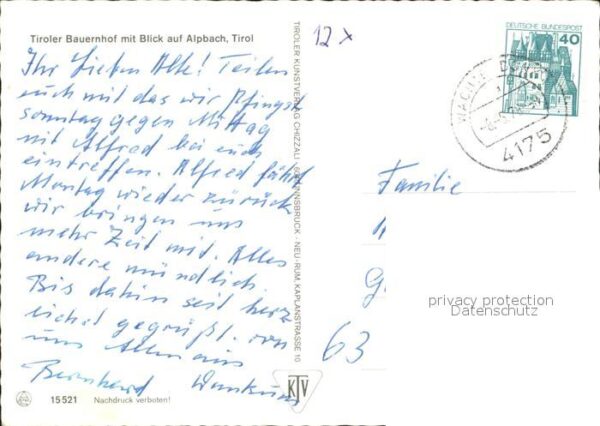 Tiroler Bauernhof mit Blick auf Alpbach, Tirol
12 x
Ihr Lieben Alle! Teilen
euch mit das wir Pfingst
sonntag gegen Mittag
mit Alfred bei euch
eintreffen. Alfred fährt
Montag wieder zurück
wir bringen uns
mehr Zeit mit. Alles
andere mündlich.
Bis dahin seit herz
lichst gegrüßt von
uns Allen aus
Bernhard
TIROLER KUNSTVERLAG CHIZZALI · INNSBRUCK · NEU-RUM, KAPLANSTRASSE 10
KTV
15521 Nachdruck verboten!
DEUTSCHE BUNDESPOST
40
4175
Familie
G
63
privacy protection
Datenschutz